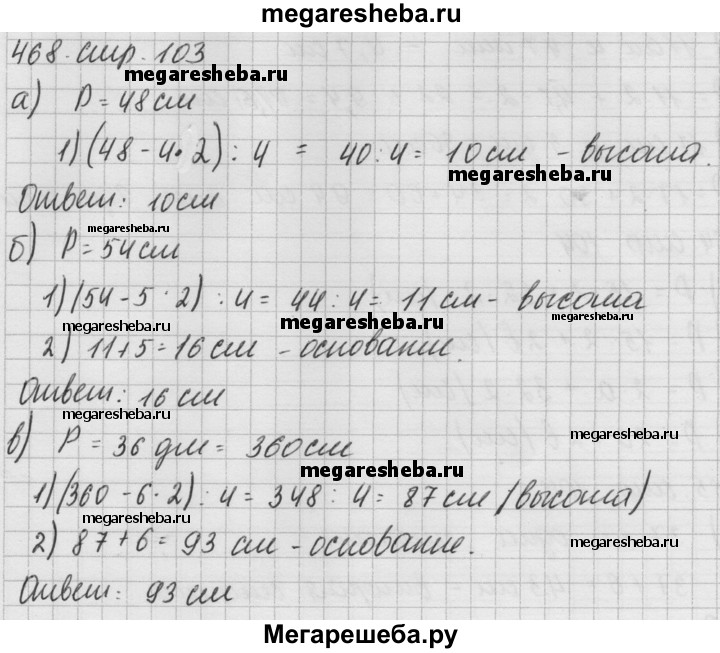 megaresheba.ru
468. стр. 103
megaresheba.ru
а) P = 48 см
1) (48 - 4 · 2) : 4 = 40 : 4 = 10 см - высота.
megaresheba.ru
Ответ: 10 см
megaresheba.ru
б) P = 54 см
1) (54 - 5 · 2) : 4 = 44 : 4 = 11 см - высота
megaresheba.ru megaresheba.ru megaresheba.ru
2) 11 + 5 = 16 см - основание.
Ответ: 16 см
megaresheba.ru
в) P = 36 дм = 360 см
megaresheba.ru
megaresheba.ru
1) (360 - 6 · 2) : 4 = 348 : 4 = 87 см (высота)
megaresheba.ru
2) 87 + 6 = 93 см - основание.
megaresheba.ru
Ответ: 93 см
Мегарешеба.ру